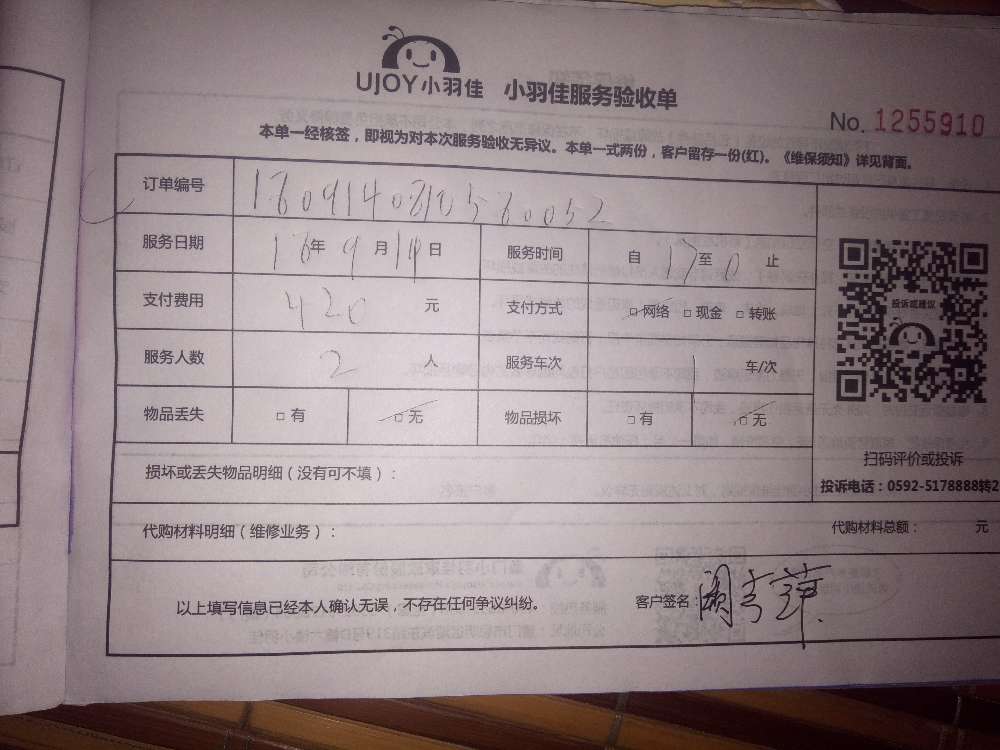 UJOY小羽佳 小羽佳服务验收单
No. 1255910
本单一经核签，即视为对本次服务验收无异议。本单一式两份，客户留存一份(红)。《维保须知》详见背面。
订单编号
服务日期 16年 9月 14日 服务时间 自 17至 0 止
支付费用 420 元 支付方式 □网络 □现金 □转账
服务人数 2 人 服务车次 1 车/次
物品丢失 □有 □无 物品损坏 □有 □无
投诉或建议
扫码评价或投诉
投诉电话：0592-5178888转2
损坏或丢失物品明细（没有可不填）：
代购材料明细（维修业务）： 代购材料总额： 元
以上填写信息已经本人确认无误，不存在任何争议纠纷。 客户签名：